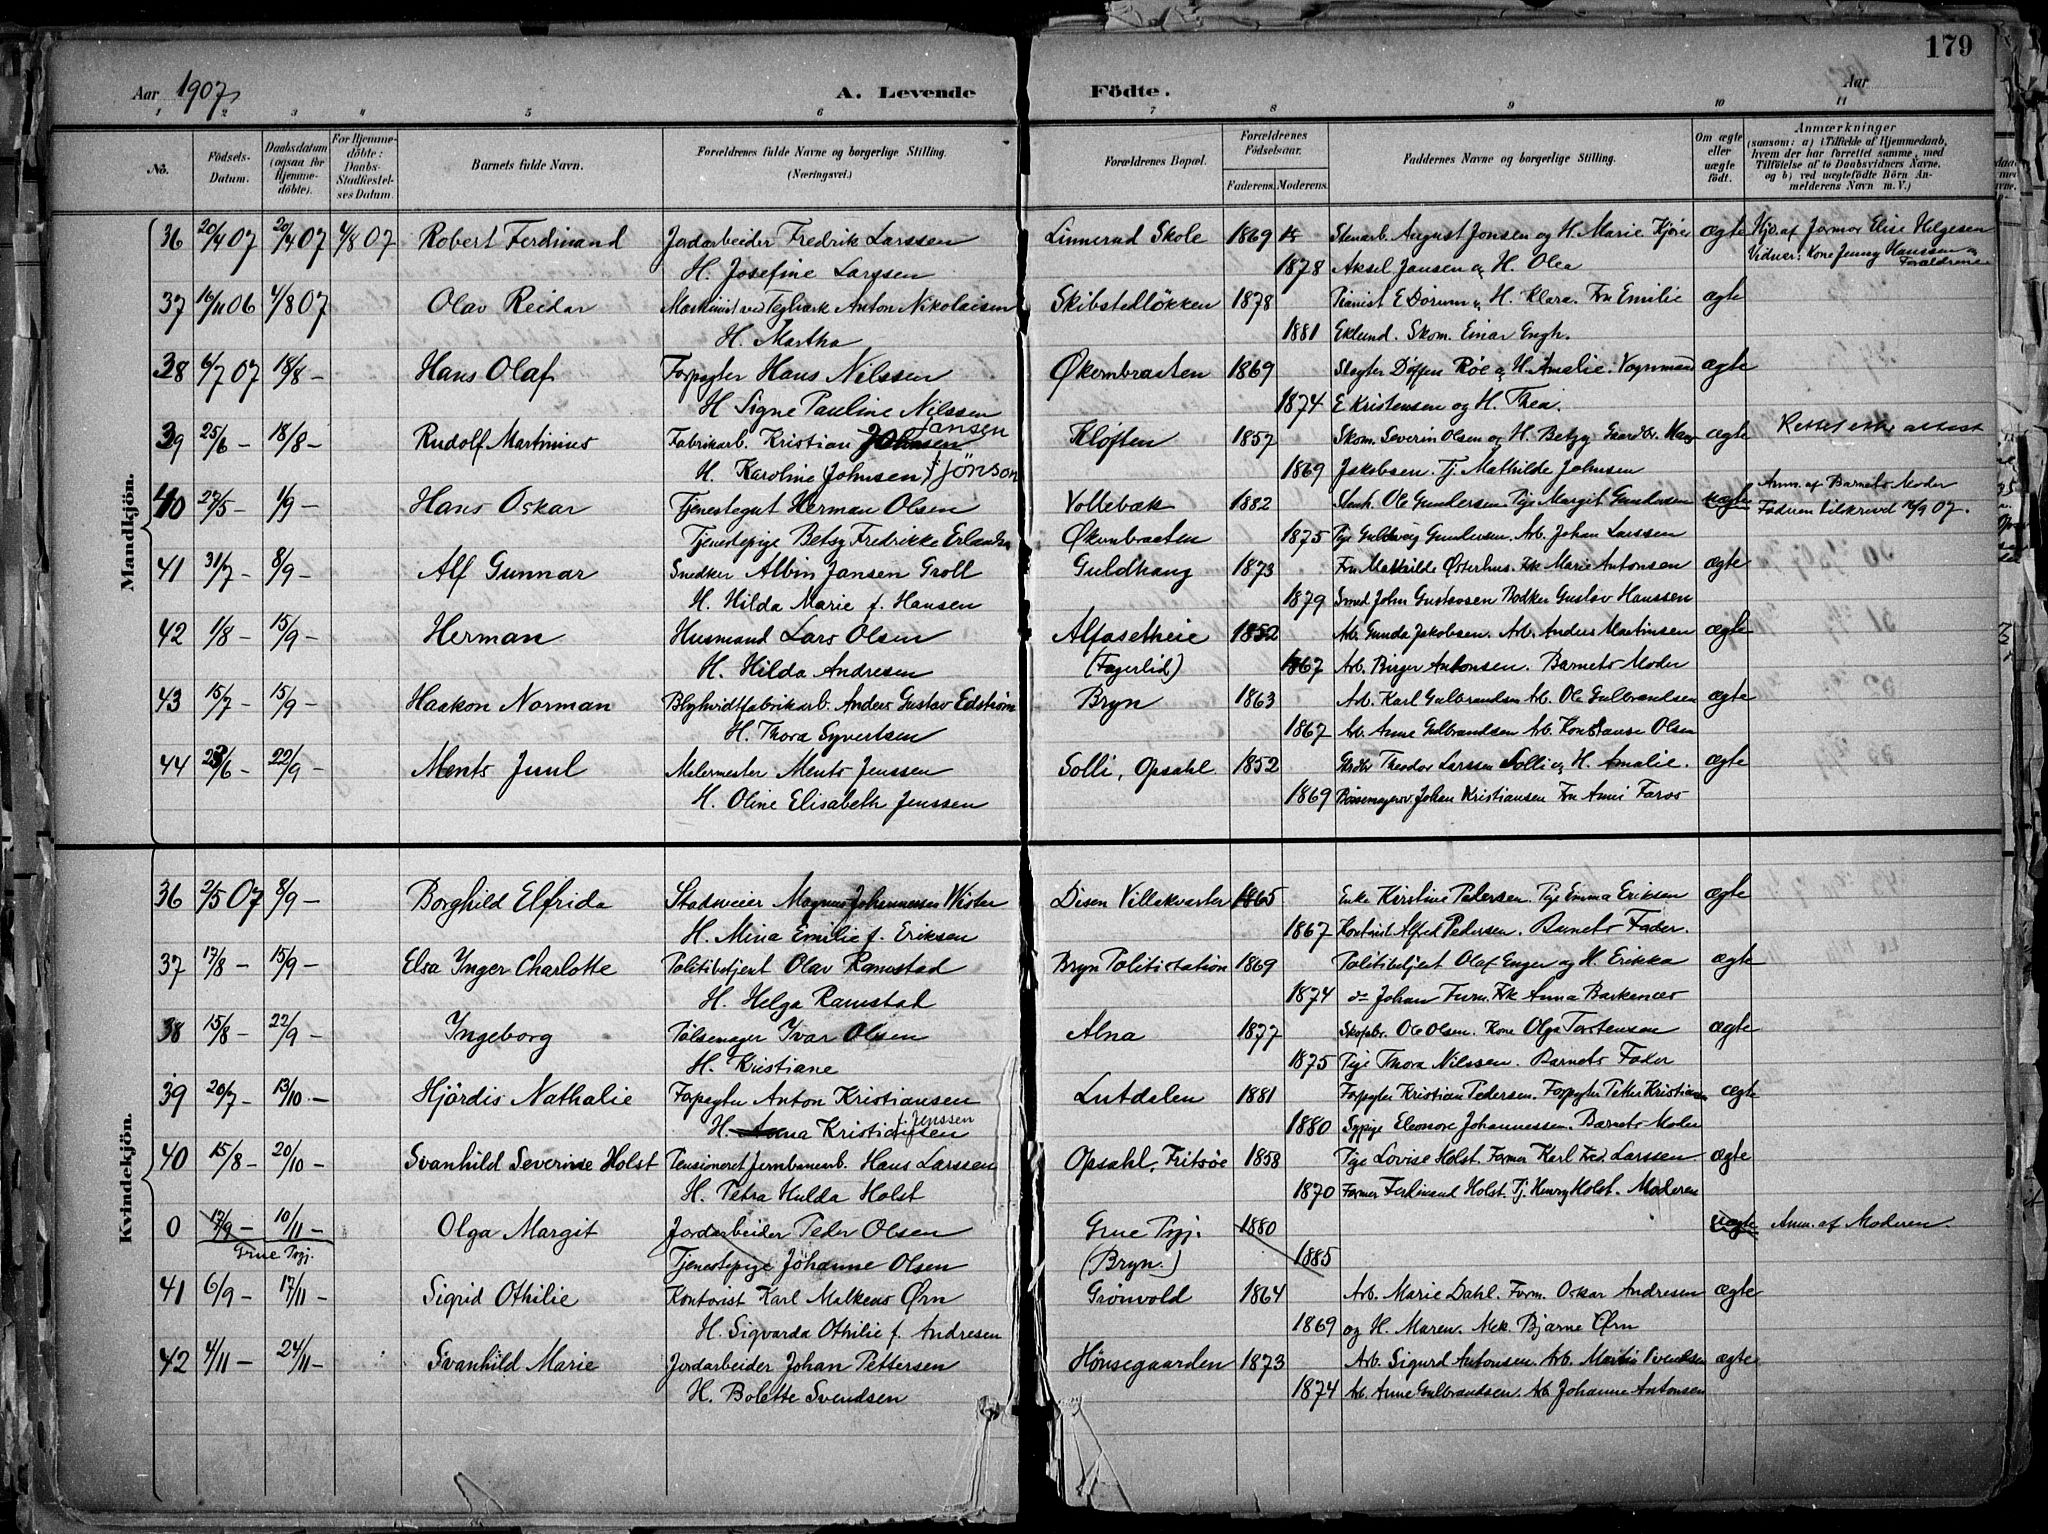 179
Aar 1907
A. Levende Födte.
Aar
1 2 3 4 5 6 7 8 9 10 11
No. Födsels-Datum. Daabsdatum (ogsaa for Hjemmedöbte). For Hjemmedöbte: Daabs-Stadfestelses Datum. Barnets fulde Navn. Forældrenes fulde Navne og borgerlige Stilling. (Næringsvei.) Forældrenes Bopæl. Forældrenes Födselsaar. Faderens. Moderens. Faddernes Navne og borgerlige Stilling. Om ægte eller uægte födt. Anmærkninger (saasom: a) i Tilfælde af Hjemmedaab, hvem der har forrettet samme, med Tilföielse af to Daabsvidners Navne. og b) ved uægtefödte Börn Anmelderens Navn m. V.)
Mandkjön.
36 20/4 07 20/4 07 4/8 07 Robert Ferdinand Jordarbeider Fredrik Larssen Linnerud Skole 1869 Stenarb. August Jonsen og H. Marie ægte Hjd. af Jormor Elise Helgesen
H. Josefine Larssen 1878 Aksel Jansen og H. Olea Vidner: Kone Jenny Hanssen og Forældrene
37 16/11 06 4/8 07 Olav Reidar Maskinist ved Teglværk Anton Nikolaisen Skibstedløkken 1878 Pianist E Dørum og H. Klara. Fru Emilie ægte
H. Martha 1881 Eklund. Skom. Einar Engh.
38 6/7 07 18/8 – Hans Olaf Forpagter Hans Nilssen Økernbraaten 1869 Slagter Røe og H. Amalie. Vognmand ægte
H. Signe Pauline Nilssen 1874 E Kristensen og H. Thea.
39 25/6 – 18/8 – Rudolf Martinius Fabrikarb. Kristian Johnsen Jansen Kløften 1857 Skom. Severin Olsen og H. Betzy Gaardbr. Hans ægte Rettet efter attest
H. Karoline (Johnsen) f. Jönson 1869 Jakobsen. Tj. Mathilde Johnsen
40 27/5 – 1/9 – Hans Oskar Tjenestegut Herman Olsen Vollebæk 1882 Stenh. Ole Gundersen. Pige Margit Gundersen uægte Anm. af Barnets Moder
Tjenestepige Betsy Fredrikke Økernbraaten 1875 Pige Gundersen. Arb. Johan Larssen Faderen tilskrevd 16/9 07.
41 31/7 – 8/9 – Alf Gunnar Snedker Albin Jansen Groll Guldhaug 1873 Fru Mathilde Østerhus. Frk Marie Antonsen ægte
H. Hilda Marie f. Hansen 1879 Smed John Gustavsen Bødker Gustav Hanssen
42 1/8 – 15/9 – Herman Husmand Lars Olsen Alfasetheie 1852 Arb. Gunda Jakobsen. Arb. Anders Martinsen ægte
H. Hilda Andresen (Fagerlid) 1867 Arb. Birger Antonsen. Barnets Moder
43 15/7 – 15/9 – Haakon Norman Blyhvidtfabrikarb. Anders Gustav Edstrøm Bryn 1863 Arb. Karl Gulbrandsen Arb. Ole Gulbrandsen ægte
H. Thora Syvertsen 1867 Arb. Anne Gulbrandsen Arb. Konstanse Olsen
44 23/6 – 22/9 – Ments Juul Malermester Ments Jenssen Solli, Opsahl 1852 Theodor Larssen Solli og H. Amalie. ægte
H. Oline Elisabeth Jenssen 1869 Bøssemagersv. Johan Kristiansen Fru Anni Faros
Kvindekjön.
36 2/5 07 8/9 – Borghild Elfrida Magnus Johannesen Wister Disen Villakvarter 1865 Enke Kirstine Pedersen. Pige Emma Eriksen ægte
H. Mina Emilie f. Eriksen 1867 Kontorist Alfred Pedersen. Barnets Fader.
37 17/8 – 15/9 – Elsa Ynger Charlotte Politibetjent Olav Ramstad Bryn Politistation 1869 Politibetjent Olaf Enger og H. Erikka ægte
H. Helga Ramstad 1874 do Johan Furu. Frk Anna Barkenæs
38 15/8 – 22/9 – Yngeborg Pølsemager Yvar Olsen Alna 1877 Skofabr. Ole Olsen. Kone Olga Torstensen ægte
H. Kristiane 1875 Pige Thora Nilssen. Barnets Fader
39 20/7 – 13/10 – Hjördis Nathalie Forpagter Anton Kristiansen Lutdalen 1881 Forpagter Kristian Pedersen. Forpagter Petter Kristiansen ægte
H. Anna Kristiansen f. Jenssen 1880 Sypige Eleonore Johannessen. Barnets Moder
40 15/8 – 20/10 – Svanhild Severine Holst Pensioneret Jernbanearb. Hans Larssen Opsahl, Fritsøe 1858 Pige Lovise Holst. Former Karl Fred. Larssen. ægte
H. Petra Hulda Holst 1870 Former Ferdinand Holst. Tj. Henry Holst. Moderen
0 17/9 – 10/11 – Olga Margit Jordarbeider Peder Olsen Grue Prgj. 1880 uægte Anm. af Moderen.
Grue Prgj. Tjenestepige Johanne Olsen (Bryn.) 1885
41 6/9 – 17/11 – Sigrid Othilie Kontorist Karl Malkens Ørn Grønvold 1864 Arb. Marie Dahl. Form. Oskar Andresen ægte
H. Sigvarda Othilie f. Andresen 1869 og H. Maren. Mek. Bjarne Ørn
42 4/11 – 24/11 – Svanhild Marie Jordarbeider Johan Pettersen Hønsegaarden 1873 Arb. Sigurd Antonsen. Arb. Svendsen ægte
H. Bolette Svendsen 1874 Arb. Anne Gulbrandsen. Arb. Johanne Antonsen